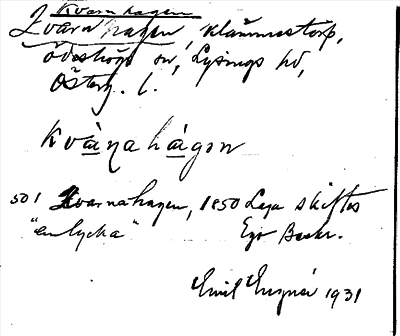 Kvarnhagen
Kvarnhagen, Klämmestorp,
Ödeshögs sn, Lysings hd,
Österg. l.
Kvànahágen
501 Kvarnahagen, 1850 Laga skiftes
"en lycka" Ego Beskr.
Emil 1931